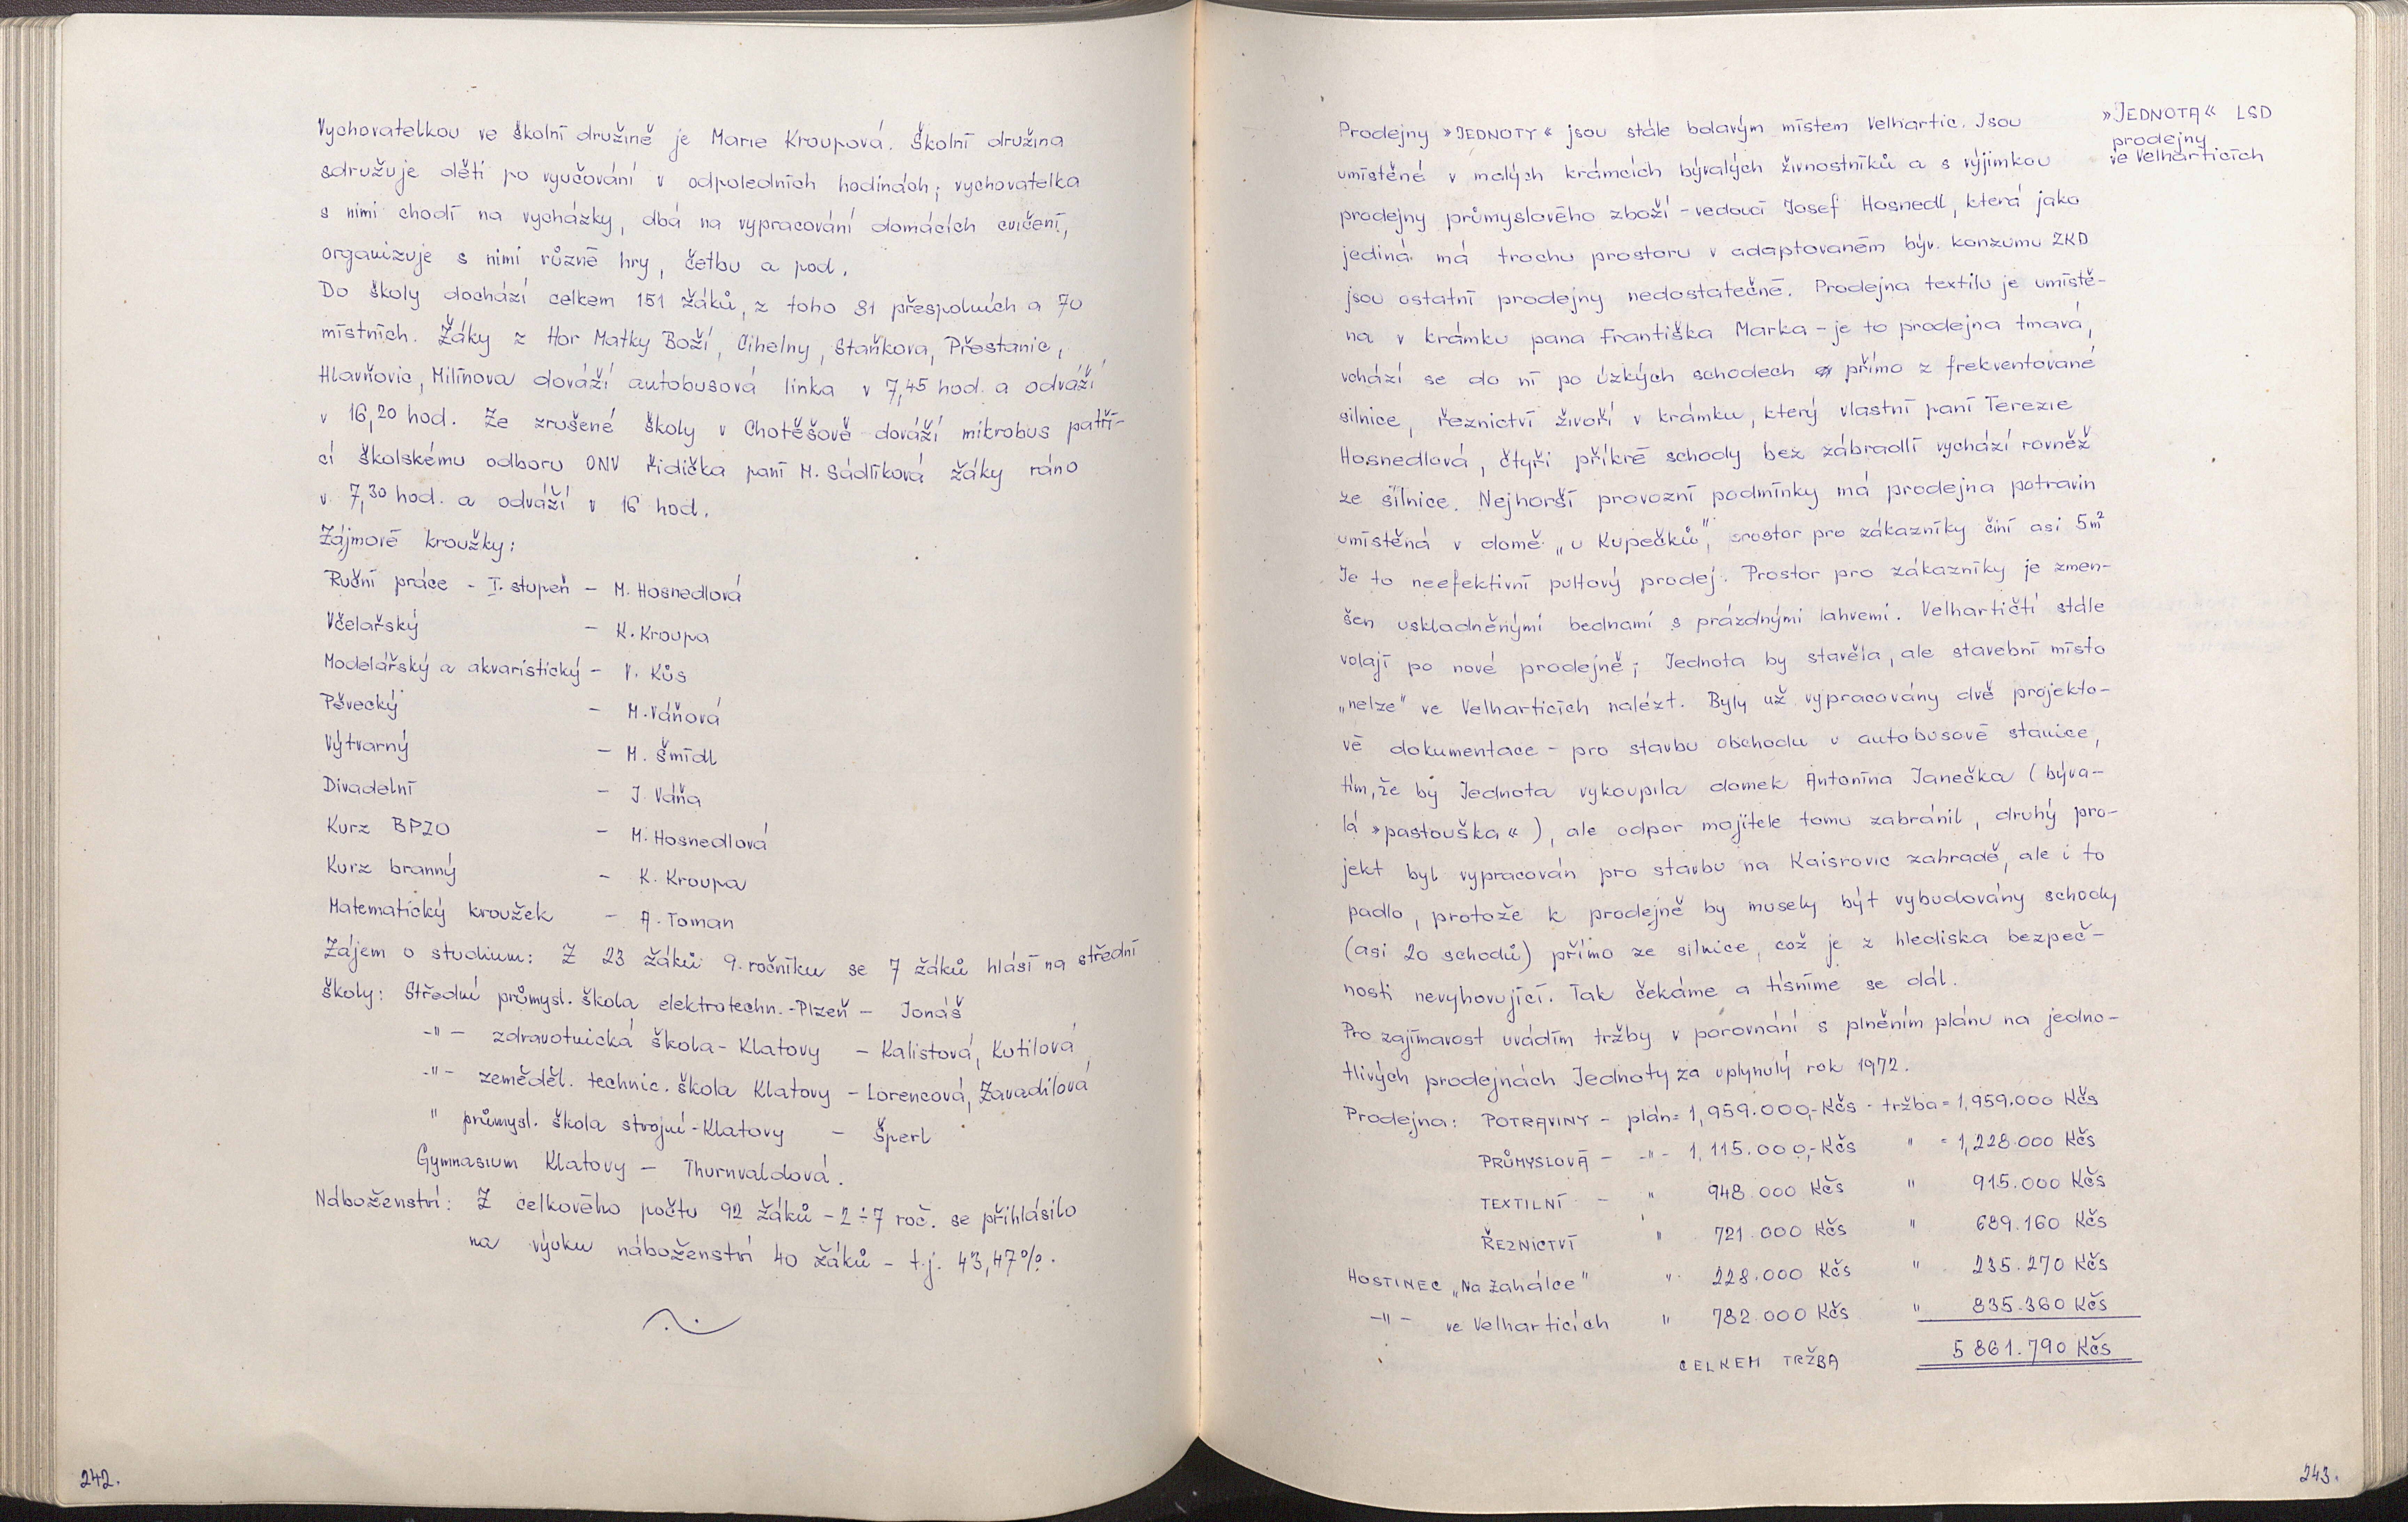 Vychovatelkou ve školní družině je Marie Kroupová. Školní družina
sdružuje děti po vyučování v odpoledních hodinách; vychovatelka
s nimi chodí na vycházky, dbá na vypracování domácích cvičení,
organizuje s nimi různé hry, četbu a pod.
Do školy dochází celkem 151 žáků, z toho 81 přespolních a 70
místních. Žáky z Hor Matky Boží, Cihelny, Staňkova, Přestanic,
Hlavňovic, Milínova dováží autobusová linka v 7,45 hod. a odváží
v 16,20 hod. Ze zrušené školy v Chotěšově dováží mikrobus patří-
cí školskému odboru ONV řidička paní M. Sádlíková žáky ráno
v 7,30 hod. a odváží v 16 hod.
Zájmové kroužky:
Ruční práce - I. stupeň - M. Hosnedlová
Včelařský - K. Kroupa
Modelářský a akvaristický - V. Kůs
Pěvecký - M. Váňová
Výtvarný - M. Šmídl
Divadelní - J. Váňa
Kurz BPZO - M. Hosnedlová
Kurz branný - K. Kroupa
Matematický kroužek - A. Toman
Zájem o studium: Z 23 žáků 9. ročníku se 7 žáků hlásí na střední
školy: Střední průmysl. škola elektrotechn. - Plzeň - Jonáš
-"- zdravotnická škola - Klatovy - Kalistová, Kutilová,
-"- zeměděl. technic. škola Klatovy - Lorencová, Zavadilová
" průmysl. škola strojní - Klatovy - Šperl
Gymnasium Klatovy - Thurnvaldová.
Náboženství: Z celkového počtu 92 žáků - 2÷7 roč. se přihlásilo
na výuku náboženství 40 žáků - t.j. 43,47%.
242.
»JEDNOTA« LSD
prodejny
ve Velharticích
Prodejny »JEDNOTY« jsou stále bolavým místem Velhartic. Jsou
umístěné v malých krámcích bývalých živnostníků a s výjimkou
prodejny průmyslového zboží - vedoucí Josef Hosnedl, která jako
jediná má trochu prostoru v adaptovaném býv. konzumu ZKD
jsou ostatní prodejny nedostatečné. Prodejna textilu je umístě-
na v krámku pana Františka Marka - je to prodejna tmavá,
vchází se do ní po úzkých schodech přímo z frekventované
silnice, řeznictví živoří v krámku, který vlastní paní Terezie
Hosnedlová, čtyři příkré schody bez zábradlí vychází rovněž
ze silnice. Nejhorší provozní podmínky má prodejna potravin
umístěná v domě „u Kupečků", prostor pro zákazníky činí asi 5m²
Je to neefektivní pultový prodej. Prostor pro zákazníky je zmen-
šen uskladněnými bednami s prázdnými lahvemi. Velhartičtí stále
volají po nové prodejně; Jednota by stavěla, ale stavební místo
„nelze" ve Velharticích nalézt. Byly už vypracovány dvě projekto-
vé dokumentace - pro stavbu obchodu u autobusové stanice,
tím, že by Jednota vykoupila domek Antonína Janečka (býva-
lá »pastouška«), ale odpor majitele tomu zabránil, druhý pro-
jekt byl vypracován pro stavbu na Kaisrovic zahradě, ale i to
padlo, protože k prodejně by musely být vybudovány schody
(asi 20 schodů) přímo ze silnice, což je z hlediska bezpeč-
nosti nevyhovující. Tak čekáme a tísníme se dál.
Pro zajímavost uvádím tržby v porovnání s plněním plánu na jedno-
tlivých prodejnách Jednoty za uplynulý rok 1972.
Prodejna: POTRAVINY - plán = 1,959.000,- Kčs - tržba = 1,959.000 Kčs
PRŮMYSLOVÁ - -"- 1,115.000,- Kčs " = 1,228.000 Kčs
TEXTILNÍ - " 948.000 Kčs " 915.000 Kčs
ŘEZNICTVÍ " 721.000 Kčs " 689.160 Kčs
HOSTINEC „Na Zahálce" " 228.000 Kčs " 235.270 Kčs
-"- ve Velharticích " 782.000 Kčs " 835.360 Kčs
CELKEM TRŽBA 5 861.790 Kčs
243.